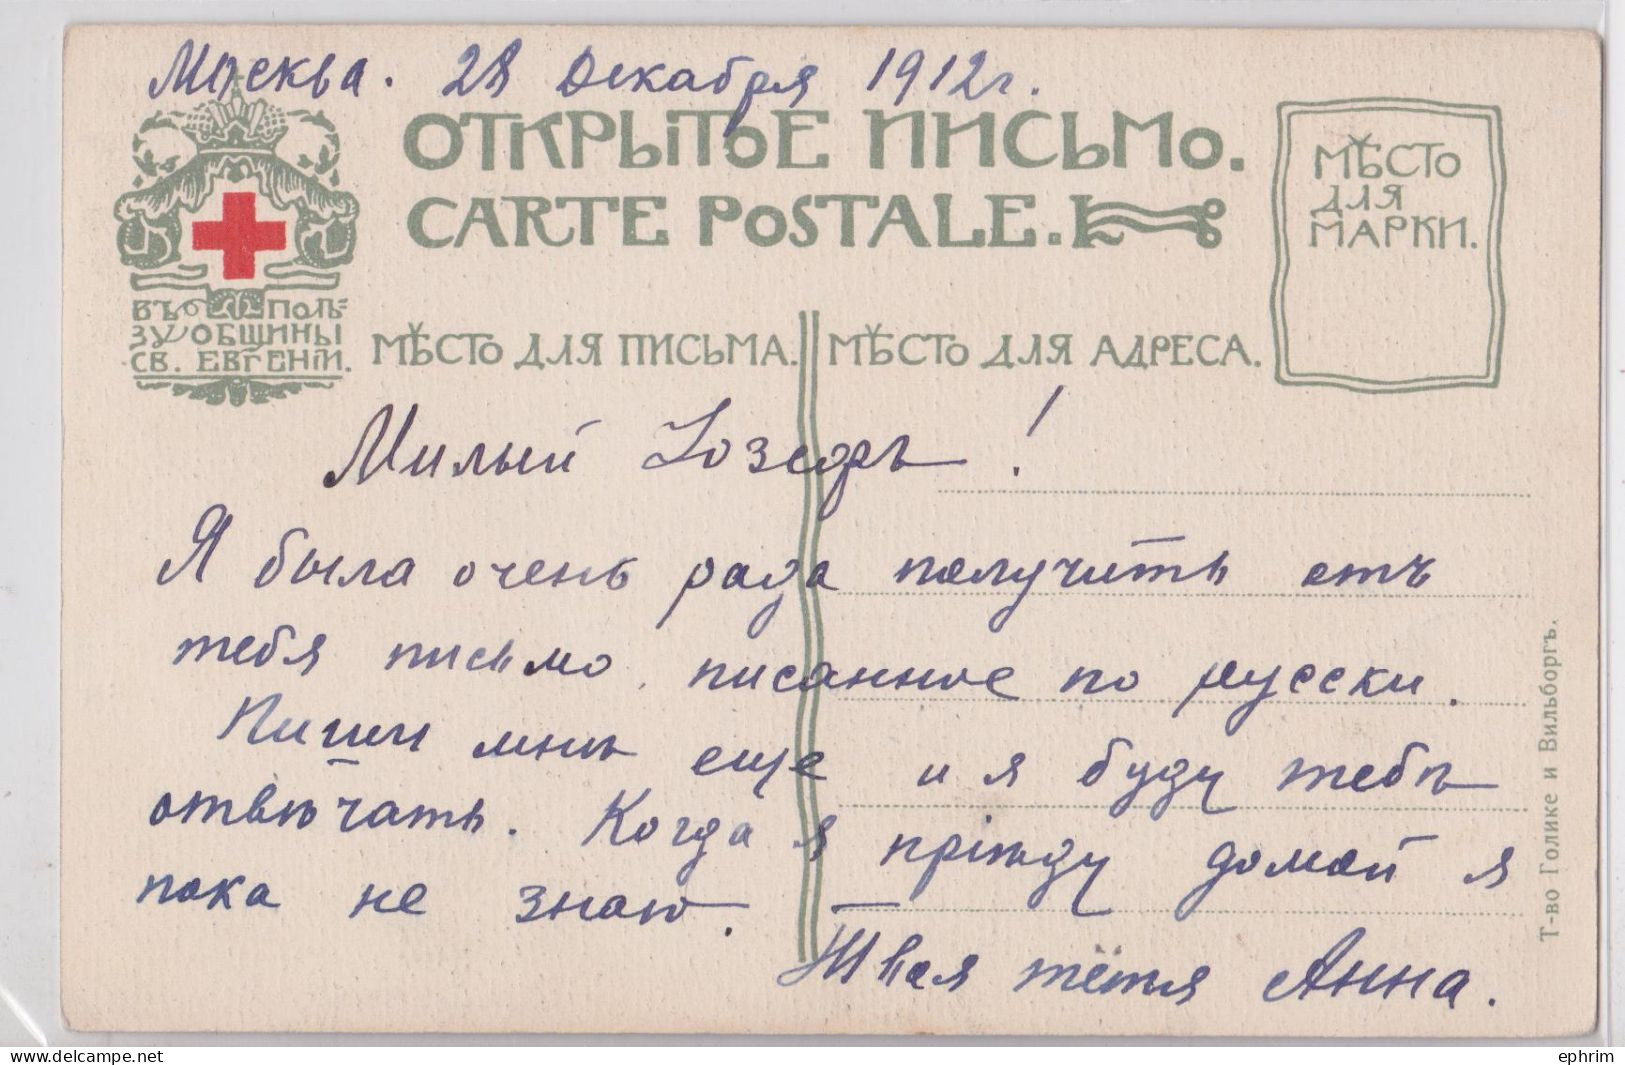 Москва. 28 Декабря 1912 г.
ОТКРЫТОЕ ПИСЬМО.
CARTE POSTALE.
МѢСТО
ДЛЯ
МАРКИ.
ВЪ ПОЛЬ=
ЗУ ОБЩИНЫ
СВ. ЕВГЕНІИ.
МѢСТО ДЛЯ ПИСЬМА.
МѢСТО ДЛЯ АДРЕСА.
Милый Іозефъ!
Я была очень рада получить отъ
тебя письмо, писанное по русски.
Пиши мнѣ еще и я буду тебѣ
отвѣчать. Когда я пріѣду домой я
пока не знаю. —
Твоя тётя Анна.
Т-во Голике и Вильборгъ.
www.delcampe.net
ephrim